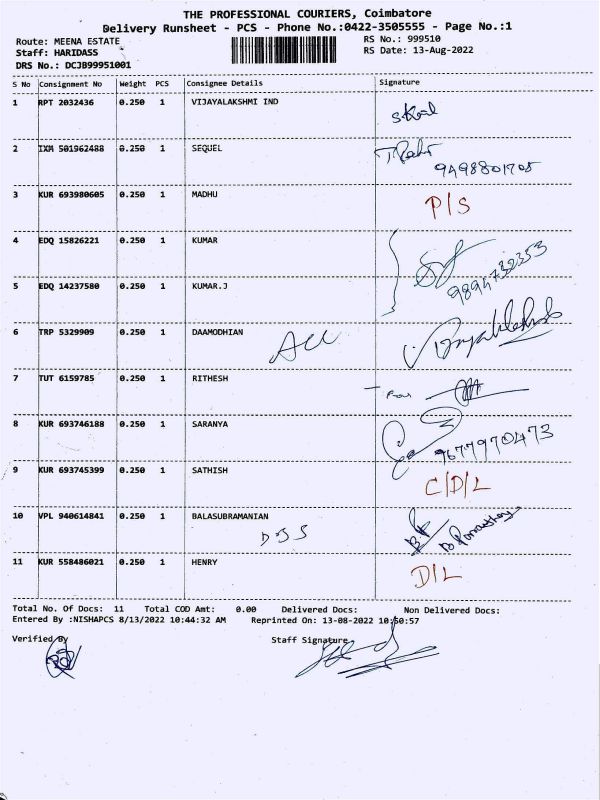 THE PROFESSIONAL COURIERS, Coimbatore
Delivery Runsheet - PCS - Phone No.:0422-3505555 - Page No.:1
Route: MEENA ESTATE RS No.: 999510
Staff: HARIDASS RS Date: 13-Aug-2022
DRS No.: DCJB99951001
S No Consignment No Weight PCS Consignee Details Signature
1 RPT 2032436 0.250 1 VIJAYALAKSHMI IND
2 IXM 501962488 0.250 1 SEQUEL
9498801705
3 KUR 693980605 0.250 1 MADHU P/S
4 EDQ 15826221 0.250 1 KUMAR
9894732353
5 EDQ 14237580 0.250 1 KUMAR.J
6 TRP 5329909 0.250 1 DAAMODHIAN
7 TUT 6159785 0.250 1 RITHESH
8 KUR 693746188 0.250 1 SARANYA
9677970473
9 KUR 693745399 0.250 1 SATHISH C/D/L
10 VPL 940614841 0.250 1 BALASUBRAMANIAN
11 KUR 558486021 0.250 1 HENRY D/L
Total No. Of Docs: 11 Total COD Amt: 0.00 Delivered Docs: Non Delivered Docs:
Entered By :NISHAPCS 8/13/2022 10:44:32 AM Reprinted On: 13-08-2022 10:50:57
Verified By Staff Signature